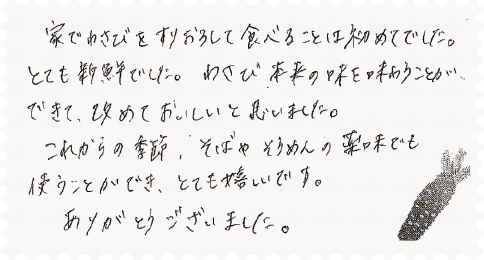 家でわさびをすりおろして食べることは初めてでした。
とても新鮮でした。わさび本来の味を味わうことが、
できて、改めておいしいと思いました。
これからの季節、そばやそうめんの薬味でも
使うことができ、とても嬉しいです。
ありがとうございました。